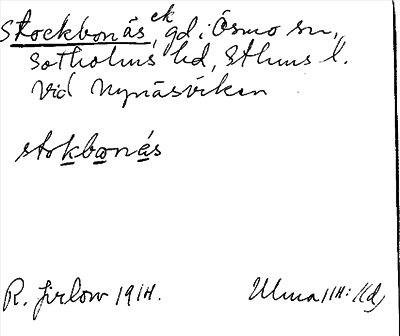 Stockbonäs, ek gd i Ösmo sn,
Sotholms hd, Sthms l.
vid Nynäsviken
stokbonás
R. Jirlow 1914.
Ulma 114: